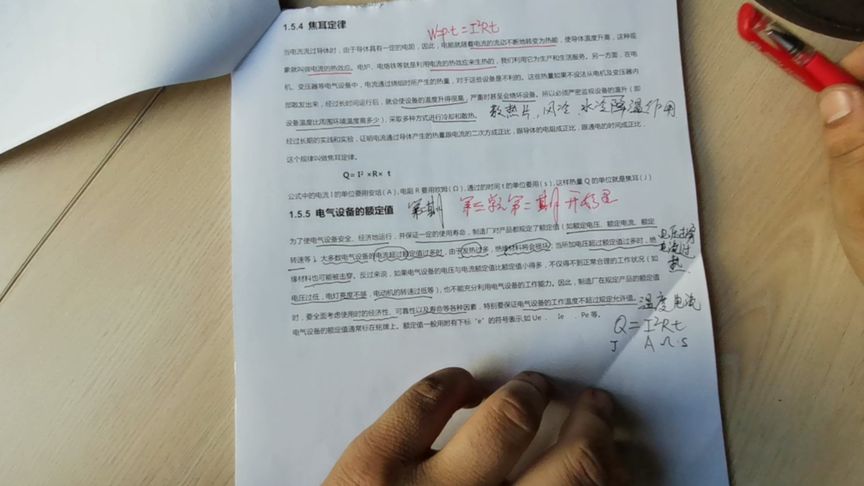 1.5.4 焦耳定律
W=p·t=I²Rt
当电流流过导体时,由于导体具有一定的电阻,因此,电能就随着电流的流动不断地转变为热能,使导体温度升高,这种现
象就叫做电流的热效应。电炉、电烙铁等就是利用电流的热效应来生热的,我们利用它为生产和生活服务。另一方面,在电
机、变压器等电气设备中,电流通过绕组时所产生的热量,对于这些设备是不利的。这些热量如果不设法从电机及变压器内
部散发出来,经过长时间运行后,就会使设备的温度升得很高,严重时甚至会烧坏设备。所以必须严密监视设备的温升(即
设备温度比周围环境温度高多少),采取多种方式进行冷却和散热。
散热片,风冷 水冷降温作用
经过长期的实践和实验,证明电流通过导体产生的热量跟电流的二次方成正比,跟导体的电阻成正比,跟通电的时间成正比,
这个规律叫做焦耳定律。
Q= I² ×R× t
公式中的电流 I 的单位要用安培(A),电阻 R 要用欧姆(Ω),通过的时间 t 的单位要用(s),这样热量 Q 的单位就是焦耳(J)
1.5.5 电气设备的额定值
为了使电气设备安全、经济地运行,并保证一定的使用寿命,制造厂对产品都规定了额定值(如额定电压、额定电流、额定
转速等)。大多数电气设备的电流超过额定值过多时,由于发热过多,绝缘材料将会损坏;当所加电压超过额定值过多时,绝
缘材料也可能被击穿。反过来说,如果电气设备的电压与电流额定值比额定值小得多,不仅得不到正常合理的工作状况(如
电压过低,电灯亮度不够,电动机的转速过低等),也不能充分利用电气设备的工作能力。因此,制造厂在规定产品的额定值
时,要全面考虑使用时的经济性、可靠性以及寿命等各种因素,特别要保证电气设备的工作温度不超过规定允许值。
温度电流
电气设备的额定值通常标在铭牌上。额定值一般用附有下标"e"的符号表示,如 Ue 、 Ie 、Pe 等。
Q=I²Rt
J A Ω·s